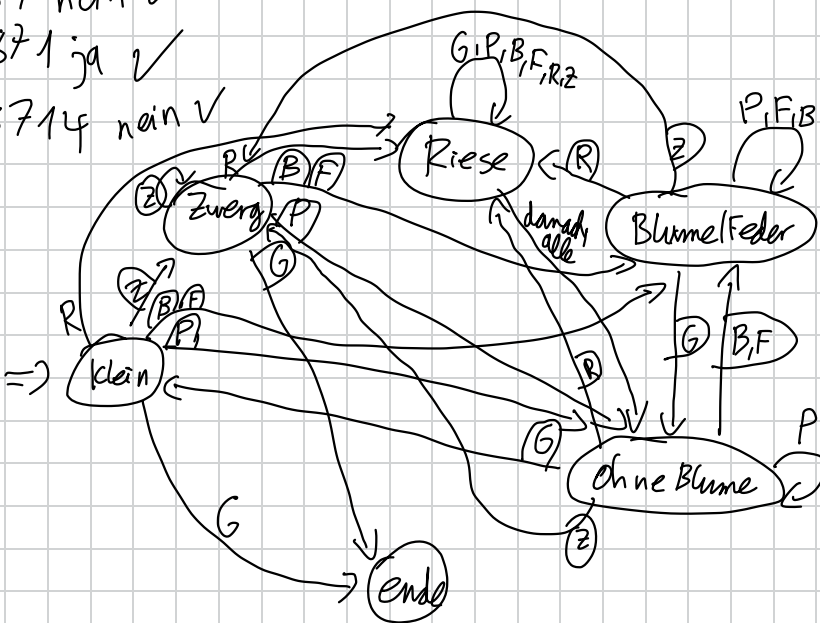 nein ✓
371 ja ✓
714 nein ✓
G,P,B,F,R,Z
P,F,B
Riese
R
Z
R
B F
Z
Zwerg
P
danach
alle
Blume/Feder
G
Z
B F
R
P
G
B,F
R
=> klein
G
P
ohne Blume
G
Z
ende